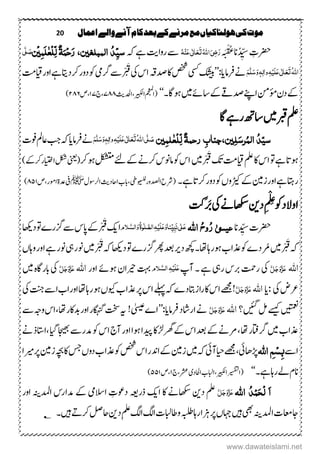 موت کی ہولناکیاں مع مرنے کے بعد کام آنے والے اعمال 20
حضرتِ سیِّدُنا عُقْبہ رَضِیَ اللہُ تَعَالٰی عَنْہُ سے روایت ہے کہ سیِّدُ المبلغین، رَحْمَۃٌ لِّلْعٰلَمِیْن صَلَّی
اللہُ تَعَالٰی عَلَیْہِ وَاٰلِہٖ وَسَلَّم نے فرمایا: ’’بےشک کسی شخص کا صدقہ اس کی قبر سے گرمی کو دور کر دیتا ہے اور قیامت
کے دن مؤمن اپنے صدقے کے سائے میں ہوگا۔‘‘ (المعجم الکبیر، الحدیث ۷۸۸، ج۱۷، ص۲۸۶)
قبر میں علم ساتھ رہے گا
سیِّدُ المُرسَلین، جنابِ رحمۃٌ لِّلْعٰلمین صَلَّی اللہُ تَعَالٰی عَلَیْہِ وَاٰلِہٖ وَسَلَّم نے فرمایا: جب عالم فوت
ہوتا ہے تو اس کا علم قیامت تک قبر میں اس کو مانوس کرنے کے لئے متشکل ہو کر (یعنی شکل اختیار کر کے)
رہتا ہے اور زمین کے کیڑوں کو دور کرتا ہے۔ (شرح الصدور للسیوطی، باب احادیث الرسول ﷺ فی عدۃ امور، ص۱۵۸)
اولاد کو علمِ دین سکھانے کی برکت
حضرتِ سیِّدُنا عیسیٰ رُوحُ اللہ عَلٰی نَبِیِّنَا وَعَلَیْہِ الصَّلٰوۃُ وَالسَّلَام ایک قبر کے پاس سے گزرے تو دیکھا
کہ قبر میں مُردے کو عذاب ہو رہا تھا۔ کچھ دیر بعد پھر گزرے تو دیکھا کہ قبر میں نور ہی نور ہے اور وہاں
اللہ عَزَّوَجَلَّ کی رحمت برس رہی ہے۔ آپ عَلَیْہِ السَّلَام بہت حیران ہوئے اور اللہ عَزَّوَجَلَّ کی بارگاہ میں
عرض کی: یا اللہ عَزَّوَجَلَّ! مجھے اس کا راز بتا کہ پہلے اس پر عذاب کیوں ہو رہا تھا اور اب اسے جنت کی
نعمتیں کیسے مل گئیں؟ اللہ عَزَّوَجَلَّ نے ارشاد فرمایا: ’’اے عیسیٰ! یہ سخت گنہگار اور بدکار تھا، اس وجہ سے
عذاب میں گرفتار تھا، مرنے کے بعد اس کے گھر لڑکا پیدا ہوا اور آج اس کو مدرسے بھیجا گیا، استاذ نے
اسے بِسْمِ اللہ پڑھائی، مجھے حیا آئی کہ میں زمین کے اندر اس شخص کو عذاب دوں جس کا بچہ زمین پر میرا
نام لے رہا ہے۔‘‘ (التفسیر الکبیر، الباب الحادی عشر، ج۱، ص۱۵۵)
اَلْحَمْدُ لِلّٰہ عَزَّوَجَلَّ علمِ دین سکھانے کا ایک ذریعہ دعوتِ اسلامی کے مدارس المدینہ اور
جامعات المدینہ بھی ہیں جہاں پر ہزارہا طلبہ و طالبات الگ الگ علمِ دین حاصل کرتے ہیں۔
www.dawateislami.net